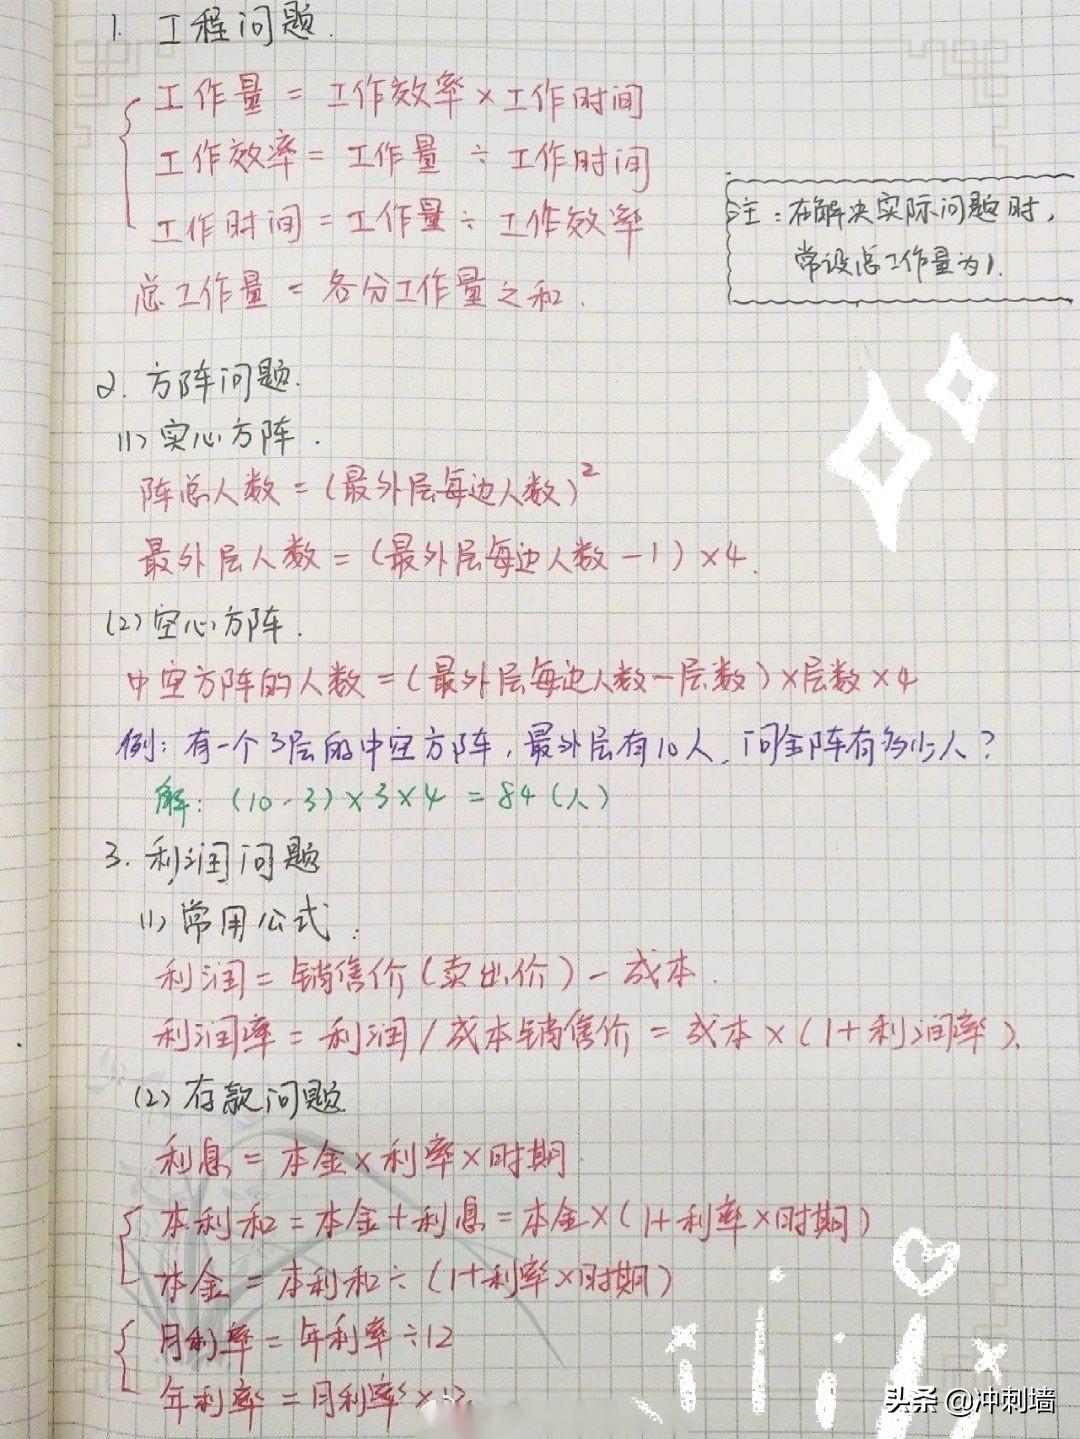 1. 工程问题.
工作量 = 工作效率 × 工作时间
工作效率 = 工作量 ÷ 工作时间
工作时间 = 工作量 ÷ 工作效率
总工作量 = 各分工作量之和.
注：在解决实际问题时，
常设总工作量为1.
2. 方阵问题.
(1) 实心方阵.
阵总人数 = (最外层每边人数)²
最外层人数 = (最外层每边人数 - 1) × 4.
(2) 空心方阵.
中空方阵的人数 = (最外层每边人数 - 层数) × 层数 × 4
例：有一个3层的中空方阵，最外层有10人，问全阵有多少人？
解：(10 - 3) × 3 × 4 = 84 (人)
3. 利润问题
(1) 常用公式：
利润 = 销售价 (卖出价) - 成本.
利润率 = 利润 / 成本销售价 = 成本 × (1 + 利润率).
(2) 存款问题
利息 = 本金 × 利率 × 时期
本利和 = 本金 + 利息 = 本金 × (1 + 利率 × 时期)
本金 = 本利和 ÷ (1 + 利率 × 时期)
月利率 = 年利率 ÷ 12
年利率 = 月利率 × 12.
头条 @冲刺墙